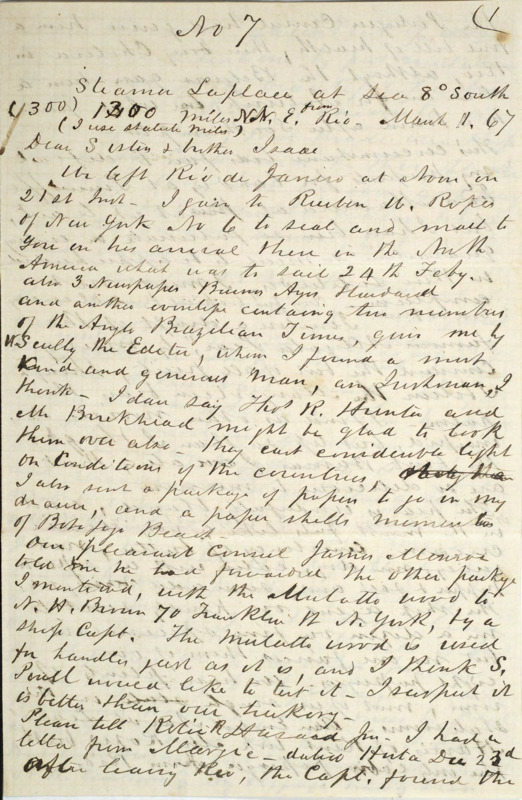 No 7
(1
Steamer Laplace at Sea 8° South
(1300) 1300 miles N.N.E. from Rio - March 1. 67
(I use statute miles)
Dear Sister & brother Isaac
We left Rio de Janeiro at Noon on
21st Inst - I gave to Reuben W. Ropes
of New York No 6 to seal and mail to
you on his arrival there in the North
America what was to sail 24th Feby.
also 3 Newspapers Buenos Ayres Standard
and another envelope containing two numbers
of the Anglo Brazilian Times, given me by
W. Scully the Editor, whom I found a most
kind and generous man, an Irishman, I
think - I dare say Thos R. Hunter and
Mr Birckhead might be glad to look
them over also - They cast considerable light
on Conditions of the countries,
I also sent a package of papers to go in my
drawer, and a paper shells mementos
of Botofogo Beach -
Our pleasant Consul James Monroe
told me he had forwarded the other package
I mentioned, with the Mulatto wood to
N. H. Brown 70 Franklin St N. York, by a
ship Capt. The Mulatto wood is used
for handles just as it is, and I think S.
Powell would like to test it - I suspect it
is better than our hickory -
Please tell R Hazard Jr. I had a
letter from Margie - dated Dec 23d
After leaving Rio, the Capt. found the